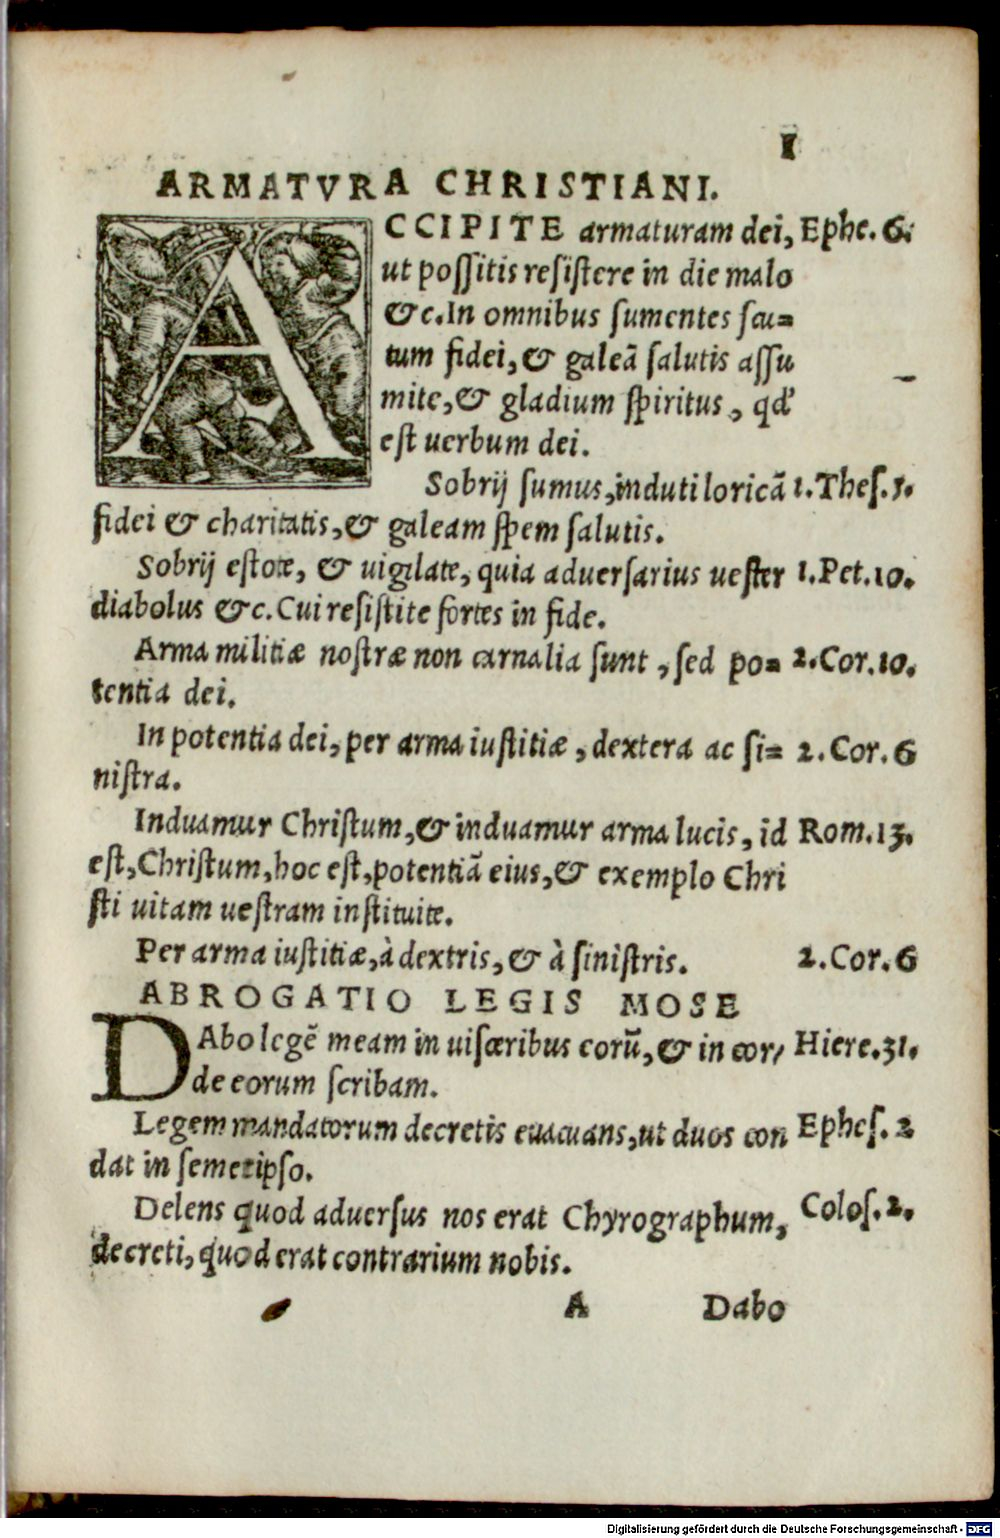 1
ARMATVRA CHRISTIANI.
ACCIPITE armaturam dei, Ephe. 6.
ut poſſitis reſiſtere in die malo
&c. In omnibus ſumentes ſcu=
tum fidei, & galeã ſalutis aſſu
mite, & gladium ſpiritus, qd'
eſt uerbum dei.
Sobrij ſumus, induti loricã 1. Theſ. 5.
fidei & charitatis, & galeam ſpem ſalutis.
Sobrij eſtote, & uigilate, quia aduerſarius ueſter 1. Pet. 10.
diabolus &c. Cui reſiſtite fortes in fide.
Arma militiæ noſtræ non carnalia ſunt, ſed po= 2. Cor. 10.
tentia dei.
In potentia dei, per arma iuſtitiæ, dextera ac ſi= 2. Cor. 6
niſtra.
Induamur Chriſtum, & induamur arma lucis, id Rom. 13.
eſt, Chriſtum, hoc eſt, potentiã eius, & exemplo Chri
ſti uitam ueſtram inſtituite.
Per arma iuſtitiæ, à dextris, & à ſiniſtris. 2. Cor. 6
ABROGATIO LEGIS MOSE
DAbo legẽ meam in uiſceribus eorũ, & in cor/ Hiere. 31.
de eorum ſcribam.
Legem mandatorum decretis euacuans, ut duos con Epheſ. 2
dat in ſemetipſo.
Delens quod aduerſus nos erat Chyrographum, Coloſ. 2.
decreti, quod erat contrarium nobis.
A Dabo
Digitalisierung gefördert durch die Deutsche Forschungsgemeinschaft - DFG